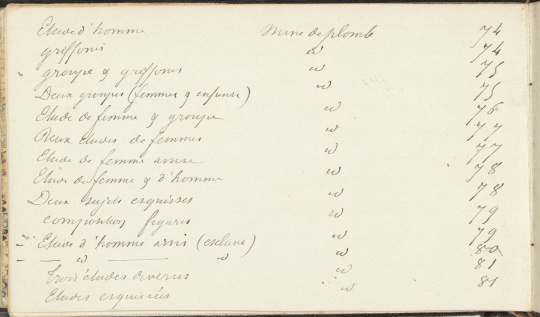 Etude d'homme mine de plomb 74
griffonis id 74
groupe & griffonis id 75
Deux groupes (femmes & enfants) id 75
Etude de femme & groupe id 76
Deux études de femmes id 77
Etude de femme assise id 77
Etude de femme & d'homme id 78
Deux sujets esquisses id 78
composition figures id 79
Etude d'homme assis (esclave) id 79
— id — id id 80
Trois études diverses id 81
Etudes esquissées id 81